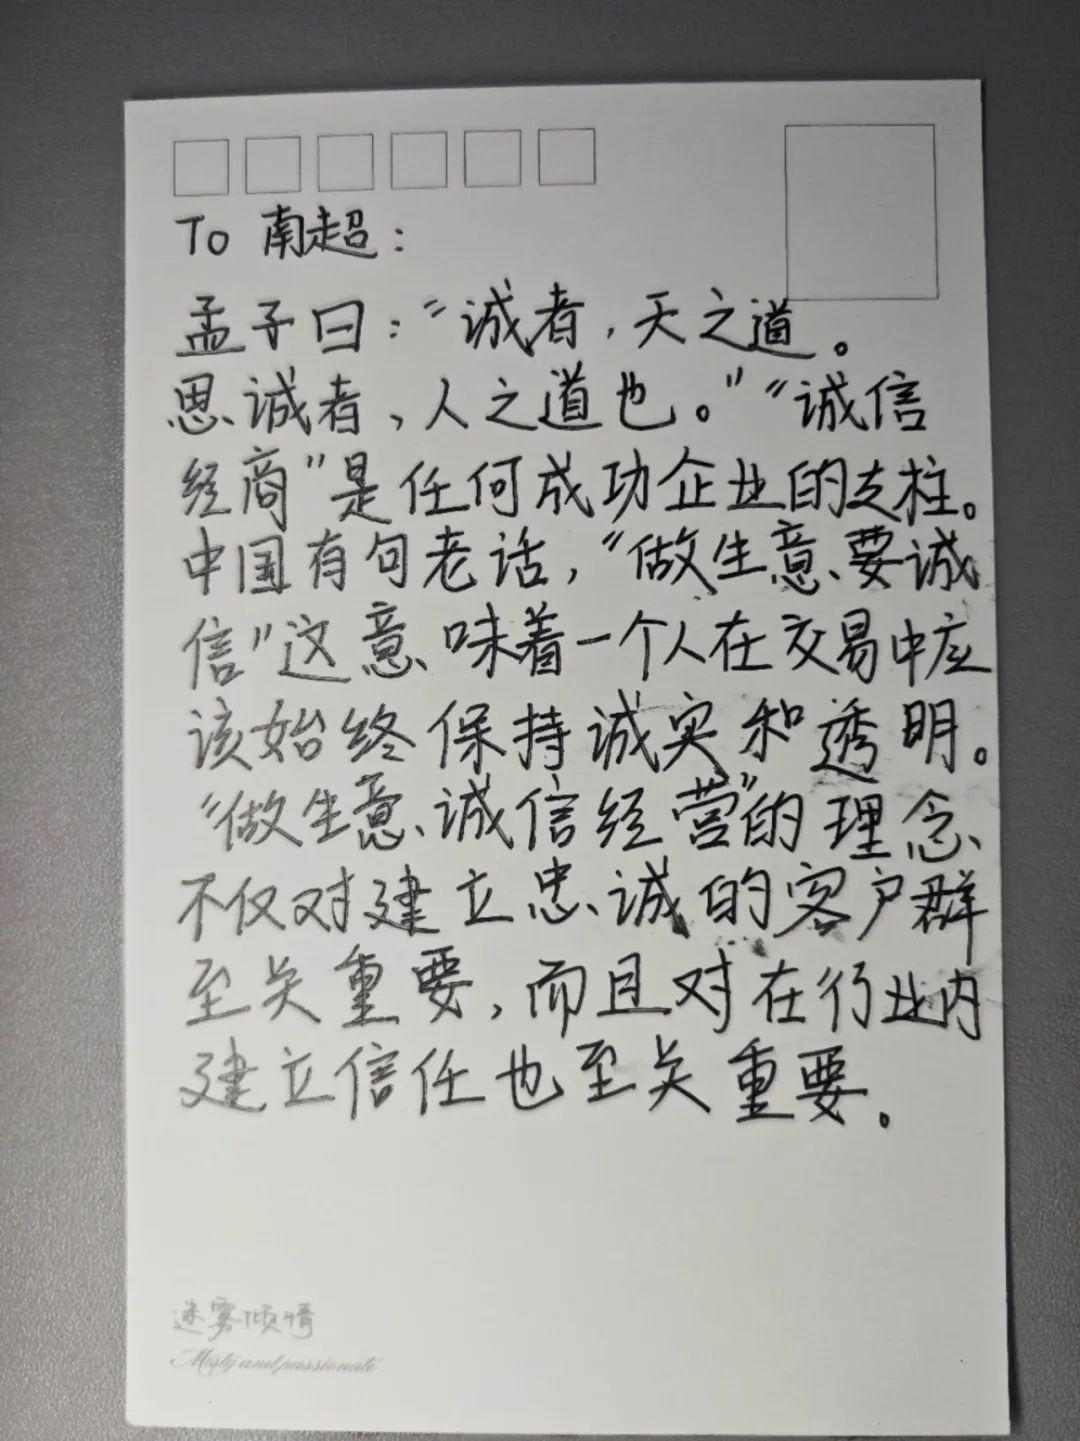 To 南超：
孟子曰：“诚者，天之道。
思诚者，人之道也。”“诚信
经商”是任何成功企业的支柱。
中国有句老话，“做生意要诚
信”这意味着一个人在交易中应
该始终保持诚实和透明。
“做生意诚信经营”的理念
不仅对建立忠诚的客户群
至关重要，而且对在行业内
建立信任也至关重要。
迷雾倾情
Misty and passionate